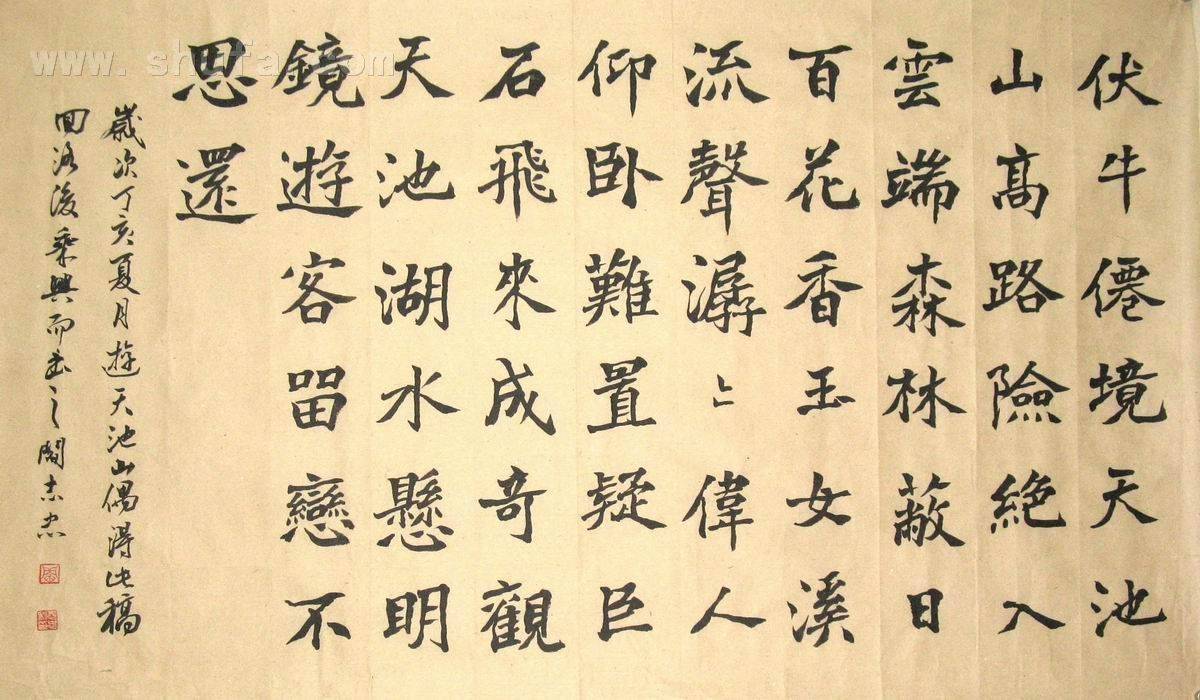 伏牛僊境天池
山高路險絶入
雲端森林蔽日
百花香玉女溪
流聲潺〻偉人
仰卧難置疑巨
石飛來成奇觀
天池湖水懸明
鏡遊客留戀不
思還
歲次丁亥夏月遊天池山偶得此稿
回洛後乘興而書之閻志忠
www.shufa.com